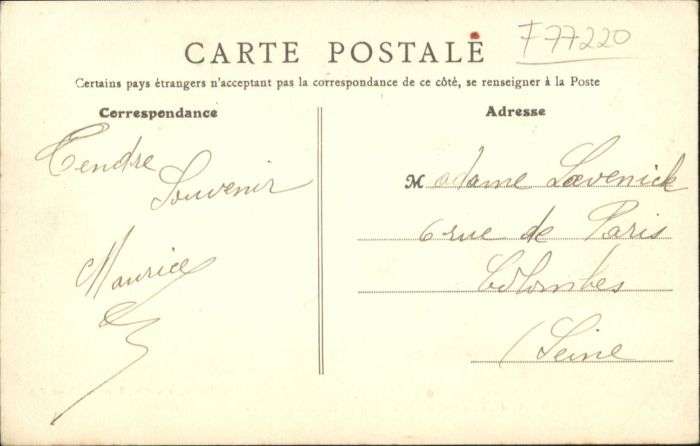 F77220
CARTE POSTALE
Certains pays étrangers n'acceptant pas la correspondance de ce côté, se renseigner à la Poste
Correspondance
Tendre
Souvenir
Maurice
Adresse
Madame Lœvenick
6 rue de Paris
Colombes
(Seine